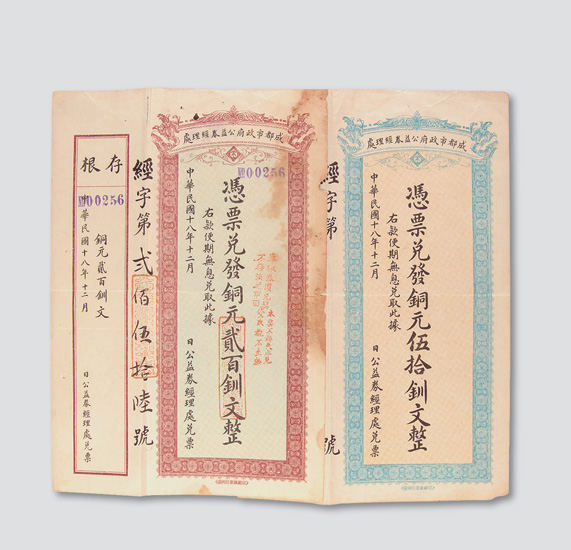 成都市政府公益券經理處
憑票兌發銅元伍拾釧文整
右款便期無息兌取此據
中華民國十八年十二月
日公益券經理處兌票
經字第
號
成都市政府公益券經理處
00256
憑票兌發銅元貳百釧文整
右款便期無息兌取此據
中華民國十八年十二月
日公益券經理處兌票
經字第貳佰伍拾陸號
存根
00256
銅元貳百釧文
華民國十八年十二月
日公益券經理處兌票